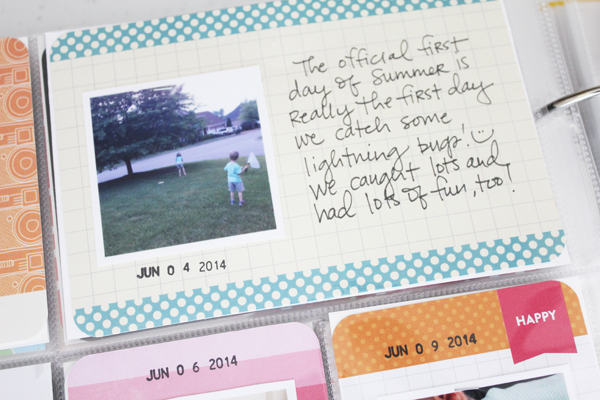 The official first
day of Summer is
Really the first day
we catch some
lightning bugs!
We caught lots and
had lots of fun, too!
JUN 0 4 2014
JUN 0 6 2014
JUN 0 9 2014
HAPPY